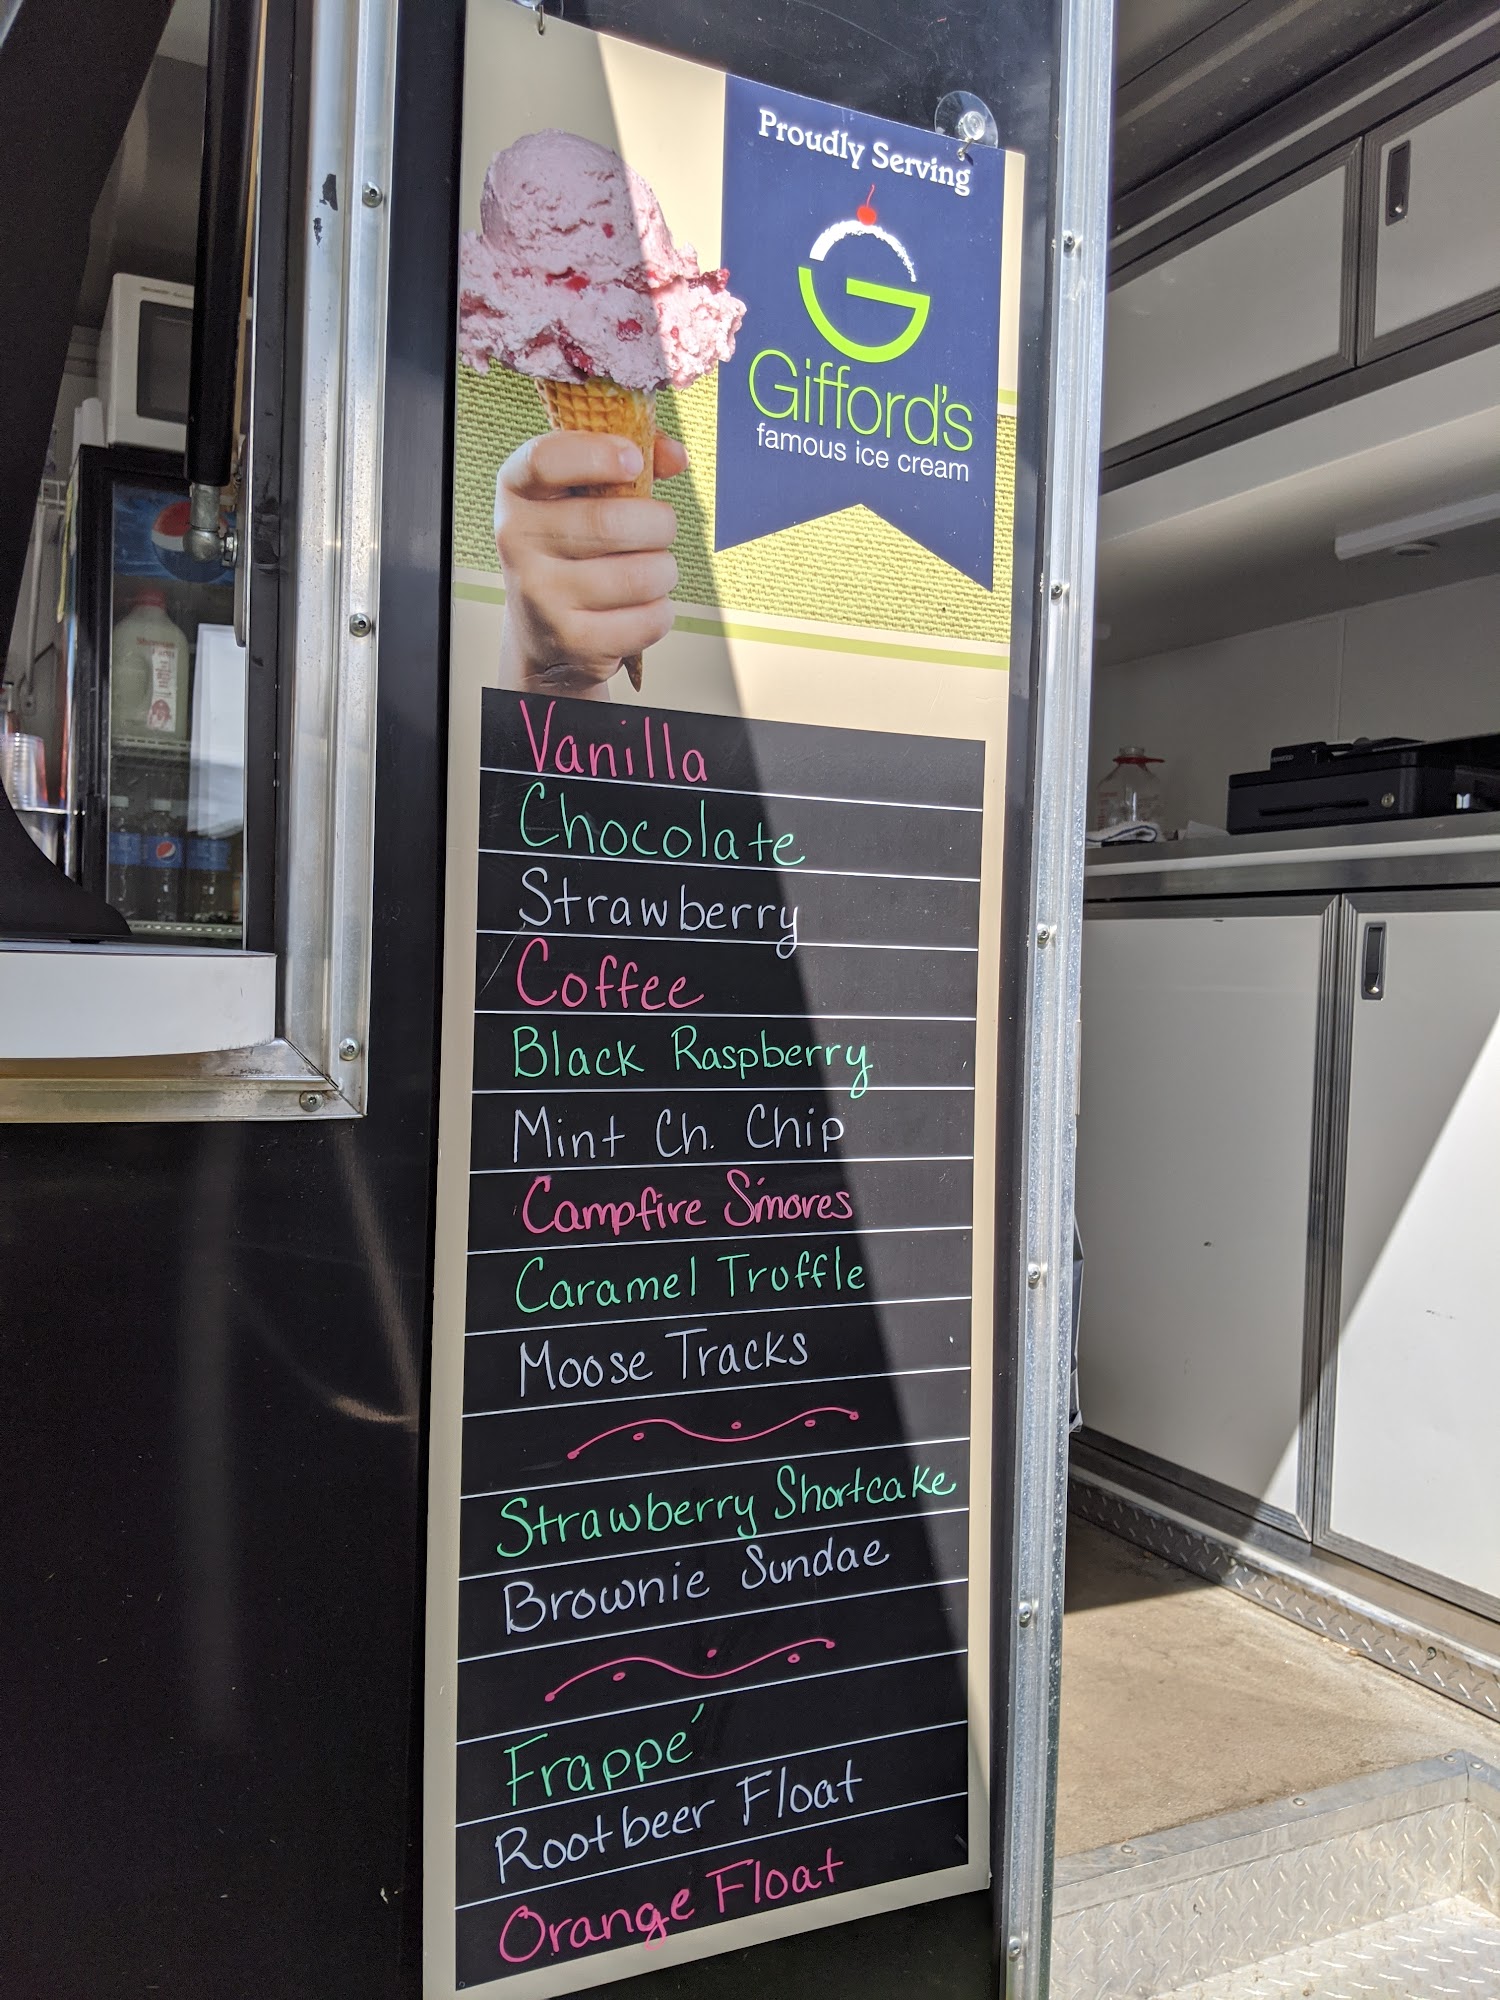 Proudly Serving
Gifford's
famous ice cream
Vanilla
Chocolate
Strawberry
Coffee
Black Raspberry
Mint Ch. Chip
Campfire S'mores
Caramel Truffle
Moose Tracks
Strawberry Shortcake
Brownie Sundae
Frappé
Rootbeer Float
Orange Float